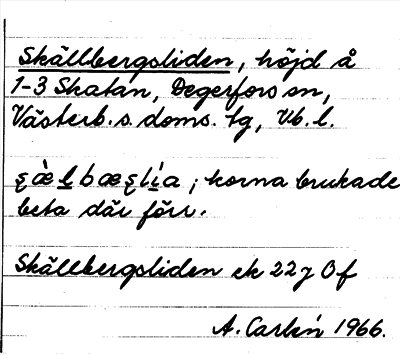 Skällbergsliden, höjd å
1-3 Skatan, Degerfors sn,
Västerb. s. doms. tg, Vb. l.
; korna brukade
beta där förr.
Skällbergsliden ek 22 J Of
A. Carlén 1966.